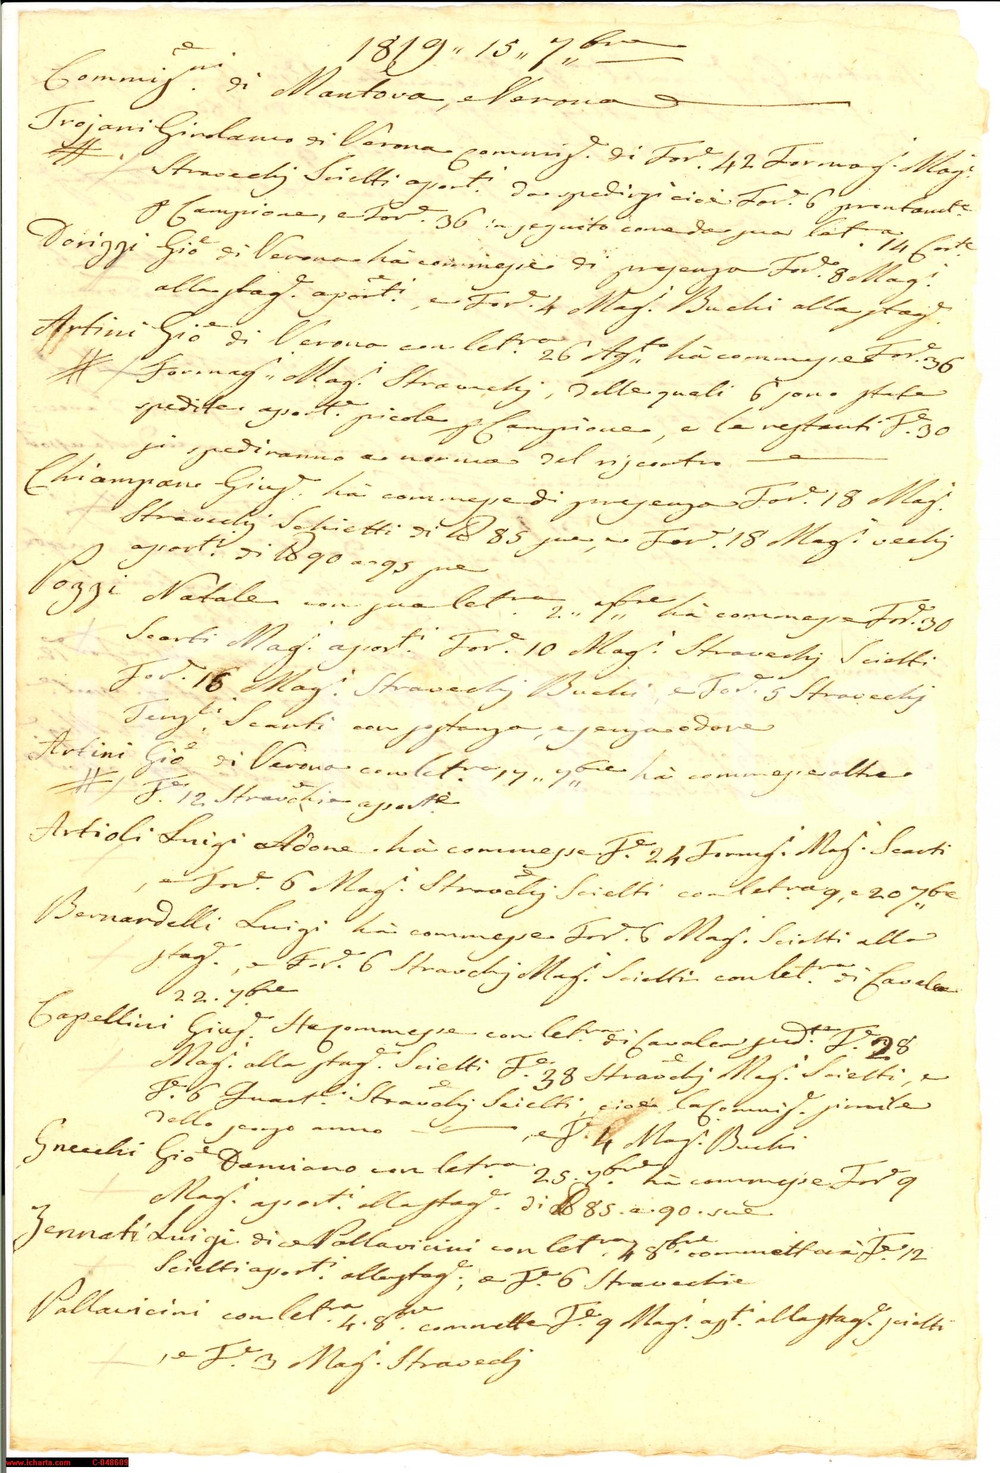 1819,, 15,, 7,,bre
Commiss.ni di Mantova, e Verona
Trojani Girolamo di Verona commiss.e di For.e 42 Formag.i Mag.i
Stravechj Scielti aport.i da spedirsi cioè For.e 6 prontam.te
p Campione, e For.e 36 in seguito come da sua let.ra 14 Cor.te
Dorizzi Gio.e di Verona hà commesse di presenza For.e 8 Mag.i
alla stag.e aport.i, e For.e 4 Mag.i Buchi alla stag.e
Artini Gio.e di Verona con let.ra 26 Ag.to hà commesse For.e 36
Formag.i Mag.i Stravechj, delle quali 6 sono state
spedite aport.e picole p Campione, e le restanti F.e 30
si spediranno a norma del riscontro
Chiampan Gius.e hà commesse di presenza For.e 18 Mag.i
Stravechj Schietti di 85 sue, e For.e 18 Mag.i vechj
aport.i di 90 a 95 sue
Pozzi Natale con sua let.ra 2,, 7,,bre hà commesse For.e 30
Scarti Mag.i aport.i For.e 10 Mag.i Stravechj Scielti
For.e 16 Mag.i Stravechj Buchi, e For.e 5 Stravechj
Scarti con sostanza, e senza odore
Artini Gio.e di Verona con let.ra 17,, 7,,bre hà commesse altre
F.e 12 Stravechie aport.e
Artioli Luigi Adone hà commesse F.e 24 Formg.i Mag.i Scarti
, e For.e 6 Mag.i Stravechj Scielti con let.ra 9, e 20 7,,bre
Bernardelli Luigi hà commesse For.e 6 Mag.i Scielti alla
stag.e, e For.e 6 Stravchj Mag.i Scielti con let.ra di Cavalea
22. 7bre
Capellini Gius.e Ha commesse con let.ra di Cavalea sud.ta F.e 28
Mag.i alla stag.e Scielti F.e 38 Stravechj Mag.i Scielti, e
F.e 6 Quart.i Stravechj Scielti, cioè la Commiss.e simile
dello scorso anno , e F.e 4 Mag.i Buchi
Gnecchi Gio.e Damiano con let.ra 25. 7bre hà commesse For.e 9
Mag.i aport.i alla stag.e di 85. a. 90. sue
Zennati Luigi dice Pallavicini con let.ra 4 8bre commetterà F.e 12
Scielti aport.i alla stag.e, e F.e 6 Stravechie
Pallavicini con let.ra 4. 8bre commette F.e 9 Mag.i apt.i alla stag.e scielti
, e F.e 3 Mag.i Stravechj
www.icharta.com C-040609